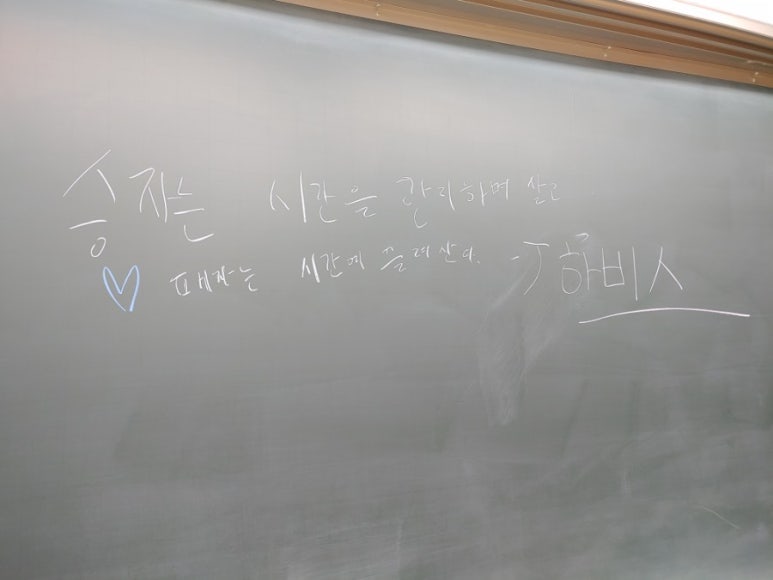 승자는 시간을 관리하며 살고
패자는 시간에 끌려 산다. -J 하비스